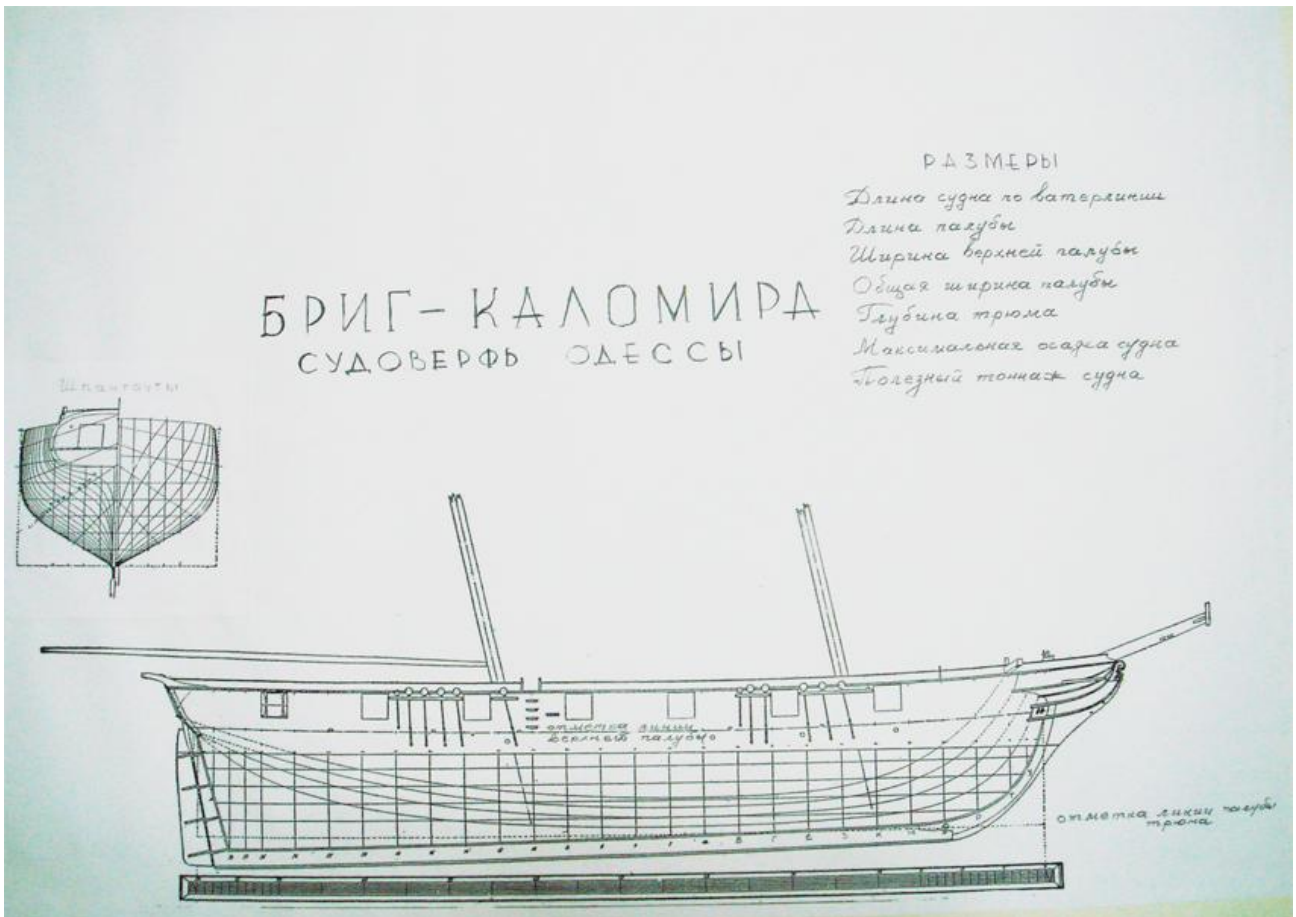 РАЗМЕРЫ
Длина судна по ватерлинии
Длина палубы
Ширина верхней палубы
Общая ширина палубы
Глубина трюма
Максимальная осадка судна
Полезный тоннаж судна
БРИГ-КАЛОМИРА
СУДОВЕРФЬ ОДЕССЫ
Шпангоуты
отметка линии
верхней палубы
отметка линии палубы
трюма